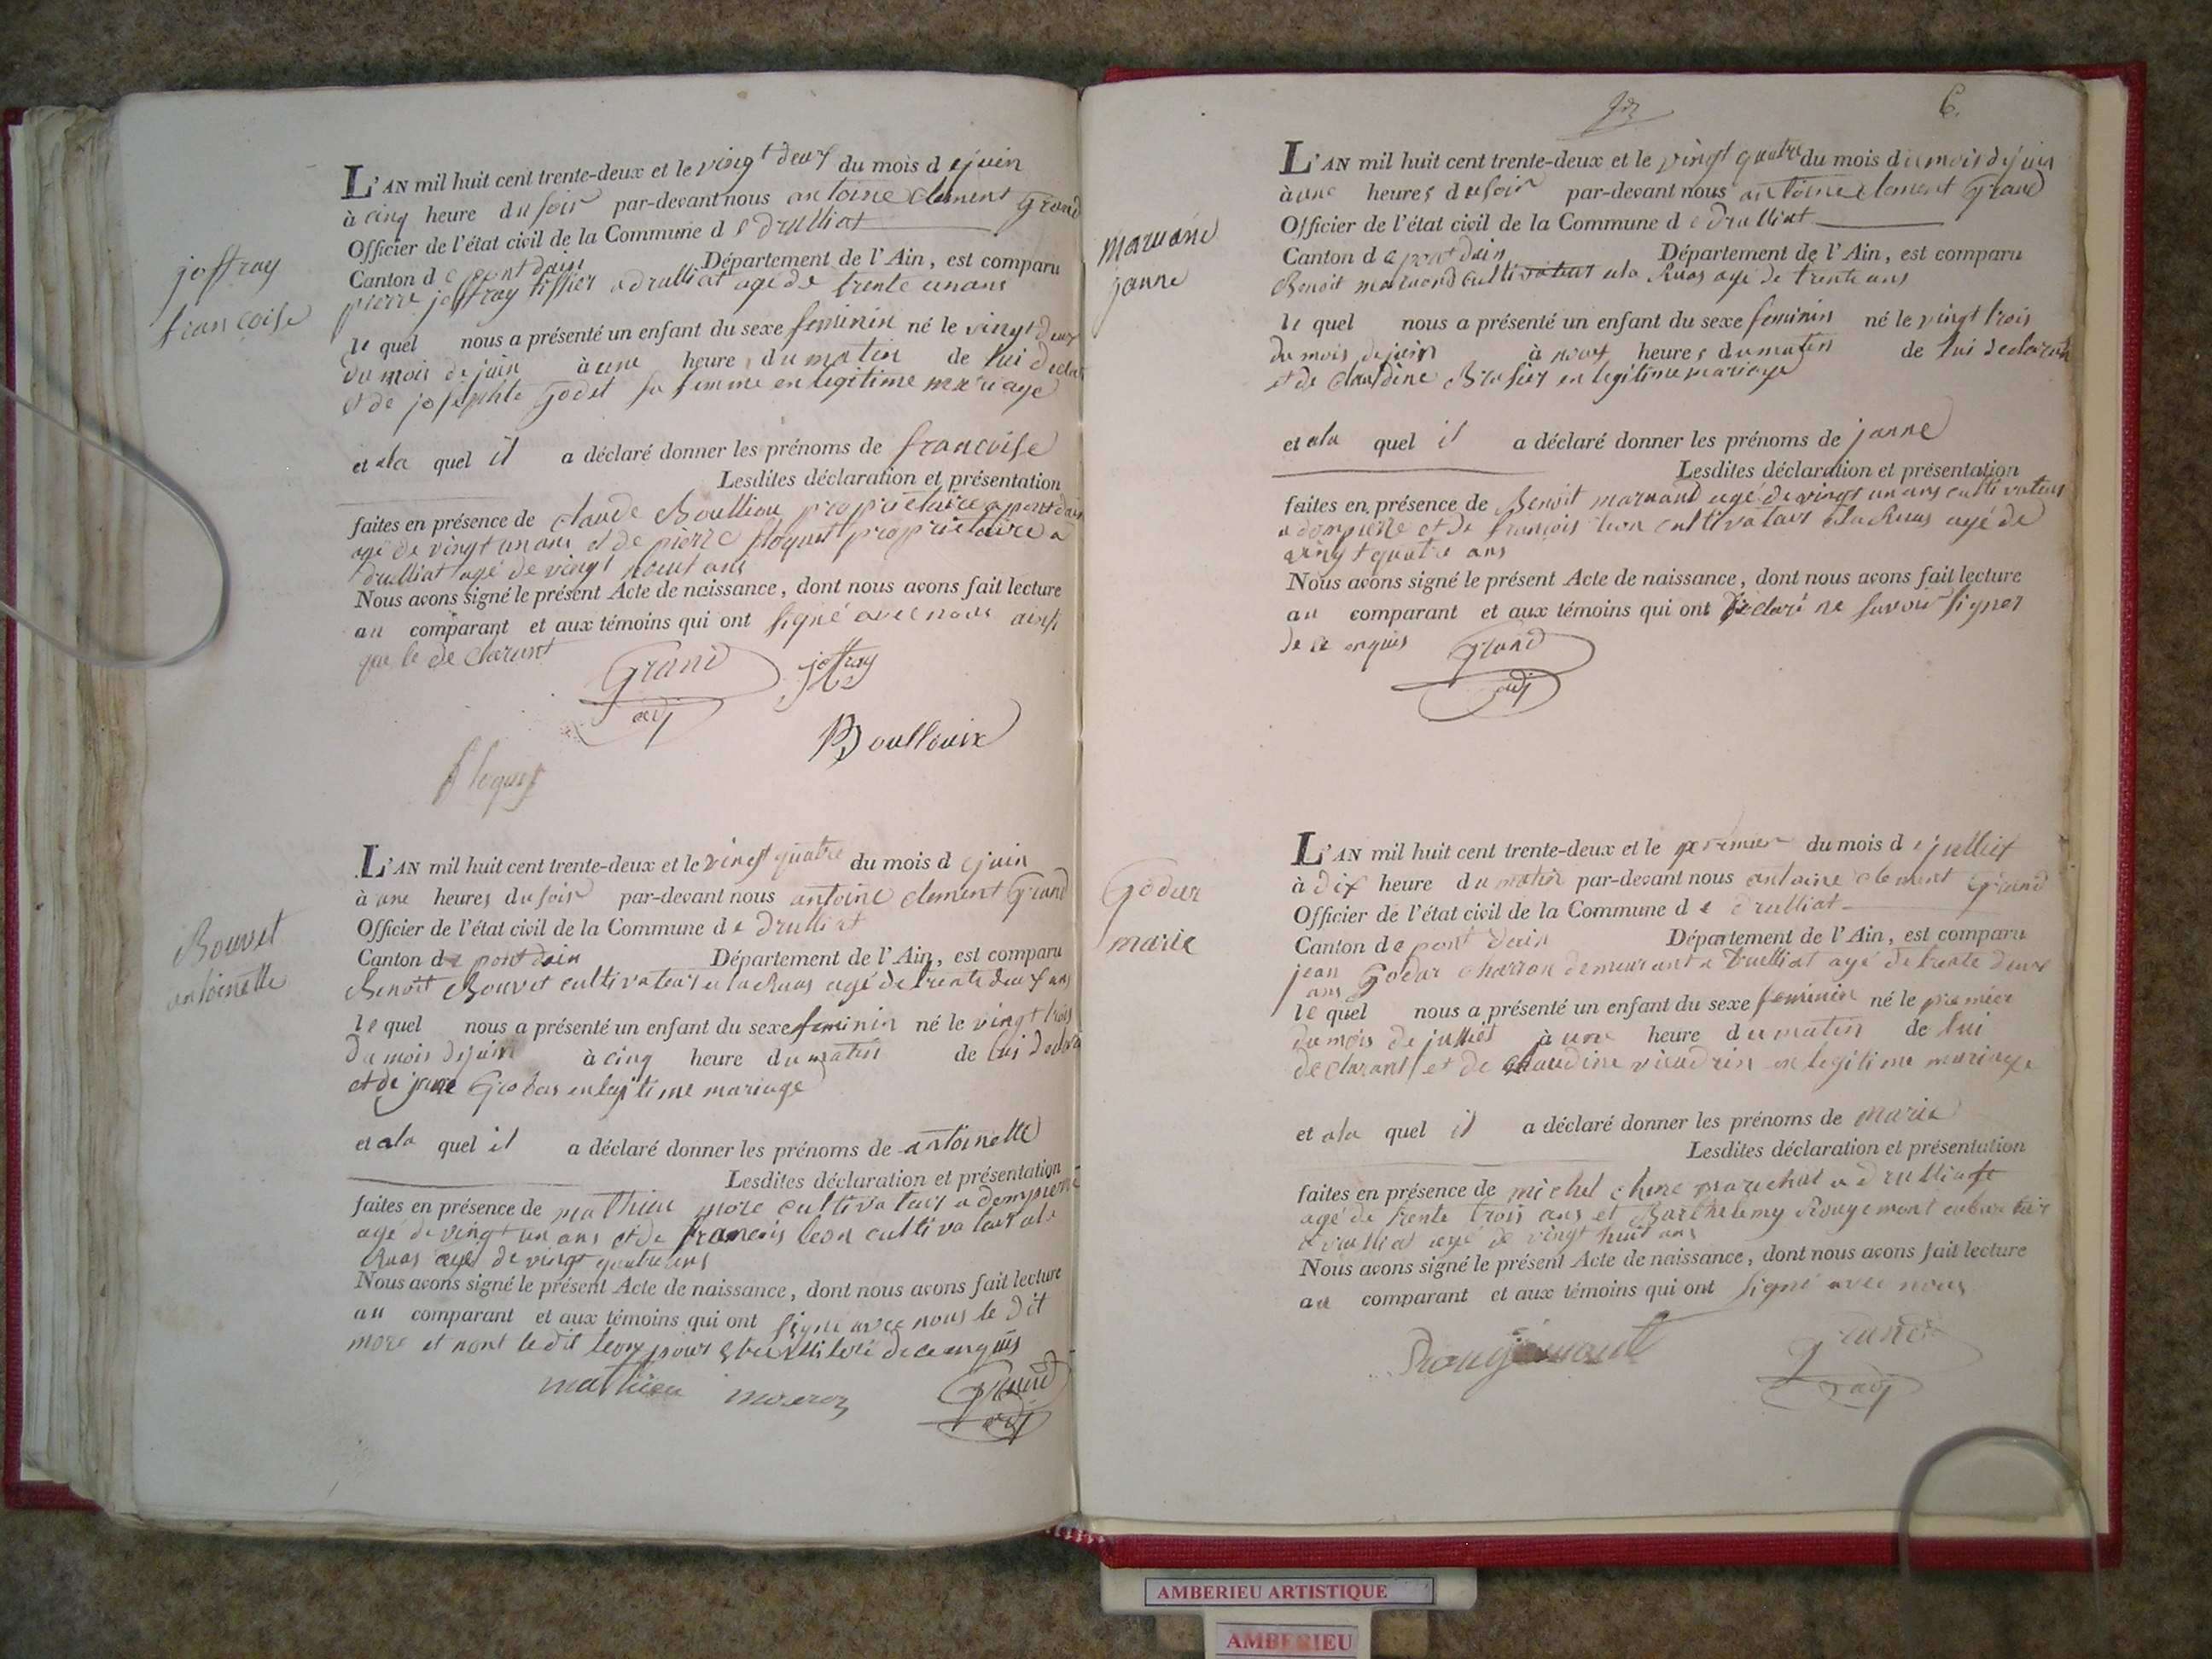 joffray
francoise
L'AN mil huit cent trente-deux et le vingt deux du mois d ejuin
à cinq heure du soir par-devant nous antoine clement Grand
Officier de l'état civil de la Commune d e druilliat
Canton d e pont dain Département de l'Ain, est comparu
pierre joffray tissier a druilliat agé de trente un ans
le quel nous a présenté un enfant du sexe feminin né le vingt deux
du mois de juin à une heure du matin de lui declar
et de josephte Godet sa femme en legitime mariage
et ala quel il a déclaré donner les prénoms de francoise
Lesdites déclaration et présentation
faites en présence de claude Boullion proprietaire a pont dain
agé de vingt un ans et de pierre floquet proprietaire a
druilliat agé de vingt neuf ans
Nous avons signé le présent Acte de naissance, dont nous avons fait lecture
au comparant et aux témoins qui ont signé avec nous ainsi
que le declarant
Grand joffray
adj
Boullouix
floquet
Bouvet
antoinette
L'AN mil huit cent trente-deux et le vingt quatre du mois d ejuin
à une heures du soir par-devant nous antoine clement Grand
Officier de l'état civil de la Commune d e druilliat
Canton d e pont dain Département de l'Ain, est comparu
Benoit Bouvet cultivateur a la Ruas agé de trente deux ans
le quel nous a présenté un enfant du sexe feminin né le vingt trois
du mois dejuin à cinq heure du matin de lui declara
et de jane Grobas en legitime mariage
et ala quel il a déclaré donner les prénoms de antoinette
Lesdites déclaration et présentation
faites en présence de mathieu more cultivateur a dompierre
agé de vingt un ans et de francois leon cultivateur ala
Ruas agé de vingt quatre ans
Nous avons signé le présent Acte de naissance, dont nous avons fait lecture
au comparant et aux témoins qui ont signé avec nous le dit
more et nont le dit leon pour de ce enquis
mathieu Grand
adj
6.
maruand
janne
L'AN mil huit cent trente-deux et le vingt quatre du mois d umois dejuin
à une heures du soir par-devant nous antoine clement Grand
Officier de l'état civil de la Commune d e druilliat
Canton d e pont dain Département de l'Ain, est comparu
Benoit maruand cultivateur ala Ruas agé de trente ans
le quel nous a présenté un enfant du sexe feminin né le vingt trois
du mois dejuin à neuf heures du matin de lui declarant
et de claudine Brasier en legitime mariage
et ala quel il a déclaré donner les prénoms de janne
Lesdites déclaration et présentation
faites en présence de Benoit maruand agé de vingt un ans cultivateur
a dompierre et de francois leon cultivateur ala Ruas agé de
vingt quatre ans
Nous avons signé le présent Acte de naissance, dont nous avons fait lecture
au comparant et aux témoins qui ont declaré ne savoir signer
de ce enquis Grand
adj
Godar
marie
L'AN mil huit cent trente-deux et le premier du mois d ejulliet
à dix heure du matin par-devant nous antoine clement Grand
Officier de l'état civil de la Commune d e druilliat
Canton d e pont dain Département de l'Ain, est comparu
jean Godar charron demeurant a druilliat agé de trente deux
ans
le quel nous a présenté un enfant du sexe feminin né le premier
du mois de julliet à une heure du matin de lui
declarant et de claudine vieudrin en legitime mariage
et ala quel il a déclaré donner les prénoms de marie
Lesdites déclaration et présentation
faites en présence de michel chene marechal a druilliat
agé de trente trois ans et Barthelemy Rougemont cabaretier
a druilliat agé de vingt huit ans
Nous avons signé le présent Acte de naissance, dont nous avons fait lecture
au comparant et aux témoins qui ont signé avec nous
Rougemont Grand
adj
AMBERIEU ARTISTIQUE
AMBERIEU